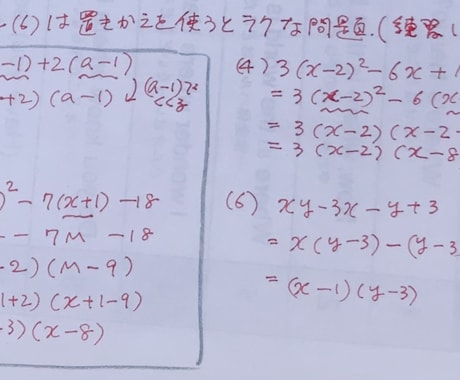 (6)は置きかえを使うとラクな問題.(練習
-1)+2(a-1)
+2)(a-1)
)² - 7(x+1) -18
- 7M -18
-2)(M-9)
1+2)(x+1-9)
-3)(x-8)
(4) 3(x-2)²-6x+1
= 3(x-2)²-6(x
= 3(x-2)(x-2-
= 3(x-2)(x-8
(6) xy-3x-y+3
= x(y-3)-(y-3
= (x-1)(y-3)